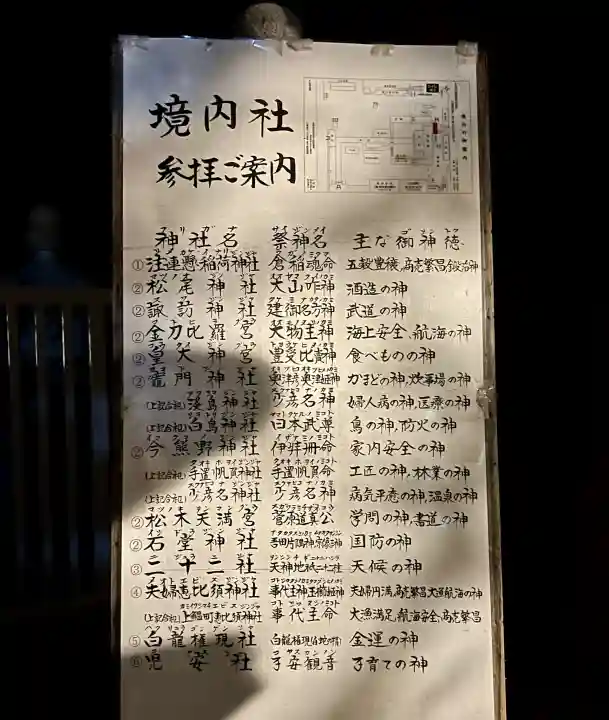 境内社
参拝ご案内
神社名 祭神名 主な御神徳
①注連懸稲荷神社 倉稲魂命 五穀豊穣、商売繁昌、鍛冶神
②松尾神社 大山咋神 酒造の神
②諏訪神社 建御名方神 武道の神
②金刀比羅宮 大物主神 海上安全、航海の神
②皇大神宮 豊受比賣神 食べものの神
②竈門神社 奥津彦奥津姫神 かまどの神、炊事場の神
(上記合祀) 淡島神社 少彦名神 婦人病の神、医療の神
(上記合祀) 白鳥神社 日本武尊 鳥の神、防火の神
②今熊野神社 伊弉冊命 家内安全の神
(上記合祀) 手置帆負神社 手置帆負命 工匠の神、林業の神
(上記合祀) 少彦名神社 少彦名神 病気平癒の神、温泉の神
②松木天満宮 菅原道真公 学問の神、書道の神
②石堂神社 国防の神
③三十三社 天神地祇三十二社 天候の神
④夫婦恵比須神社 夫婦円満、商売繁昌、大漁航海の神
(上記合祀) 上鰮町恵比須神社 事代主命 大漁満足、航海安全、商売繁昌
⑤白龍権現社 白龍権現 金運の神
⑥児安社 子安観音 子育ての神